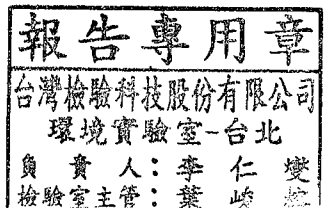 報告專用章
台灣檢驗科技股份有限公司
環境實驗室-台北
負責人：李仁燮
檢驗室主管：葉